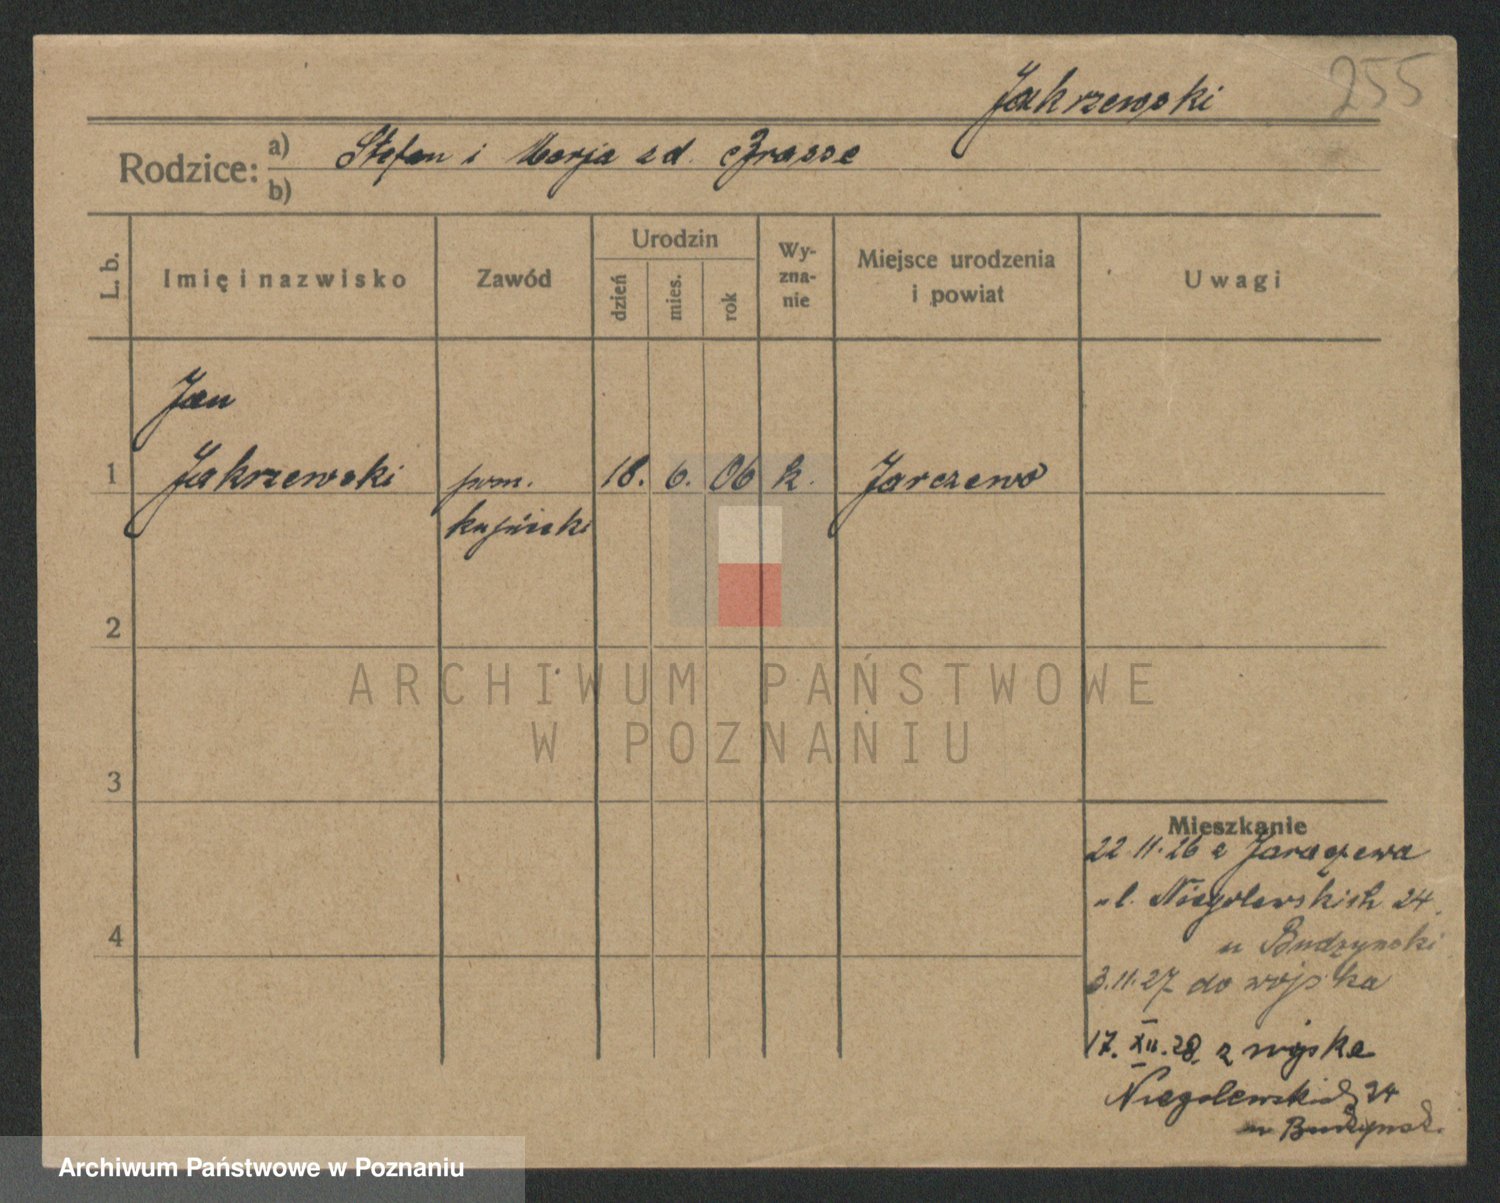 Jakrzewski
255
Rodzice: a) Stefan i Marja zd.
b)
L. b.
Imię i nazwisko
Zawód
Urodzin
dzień
mies.
rok
Wy-
zna-
nie
Miejsce urodzenia
i powiat
Uwagi
Jan
1 Jakrzewski pom. 18. 6. 06 k. Jarczewo
kupiecki
2
3
4
ARCHIWUM PAŃSTWOWE
W POZNANIU
Mieszkanie
22.11.26 z Jaraczewa
ul. Niegolewskich 24
u Budzynski
3.11.27 do wojska
17. XII. 28. z wojska
Niegolewskich 24
u Budzynsk.
Archiwum Państwowe w Poznaniu